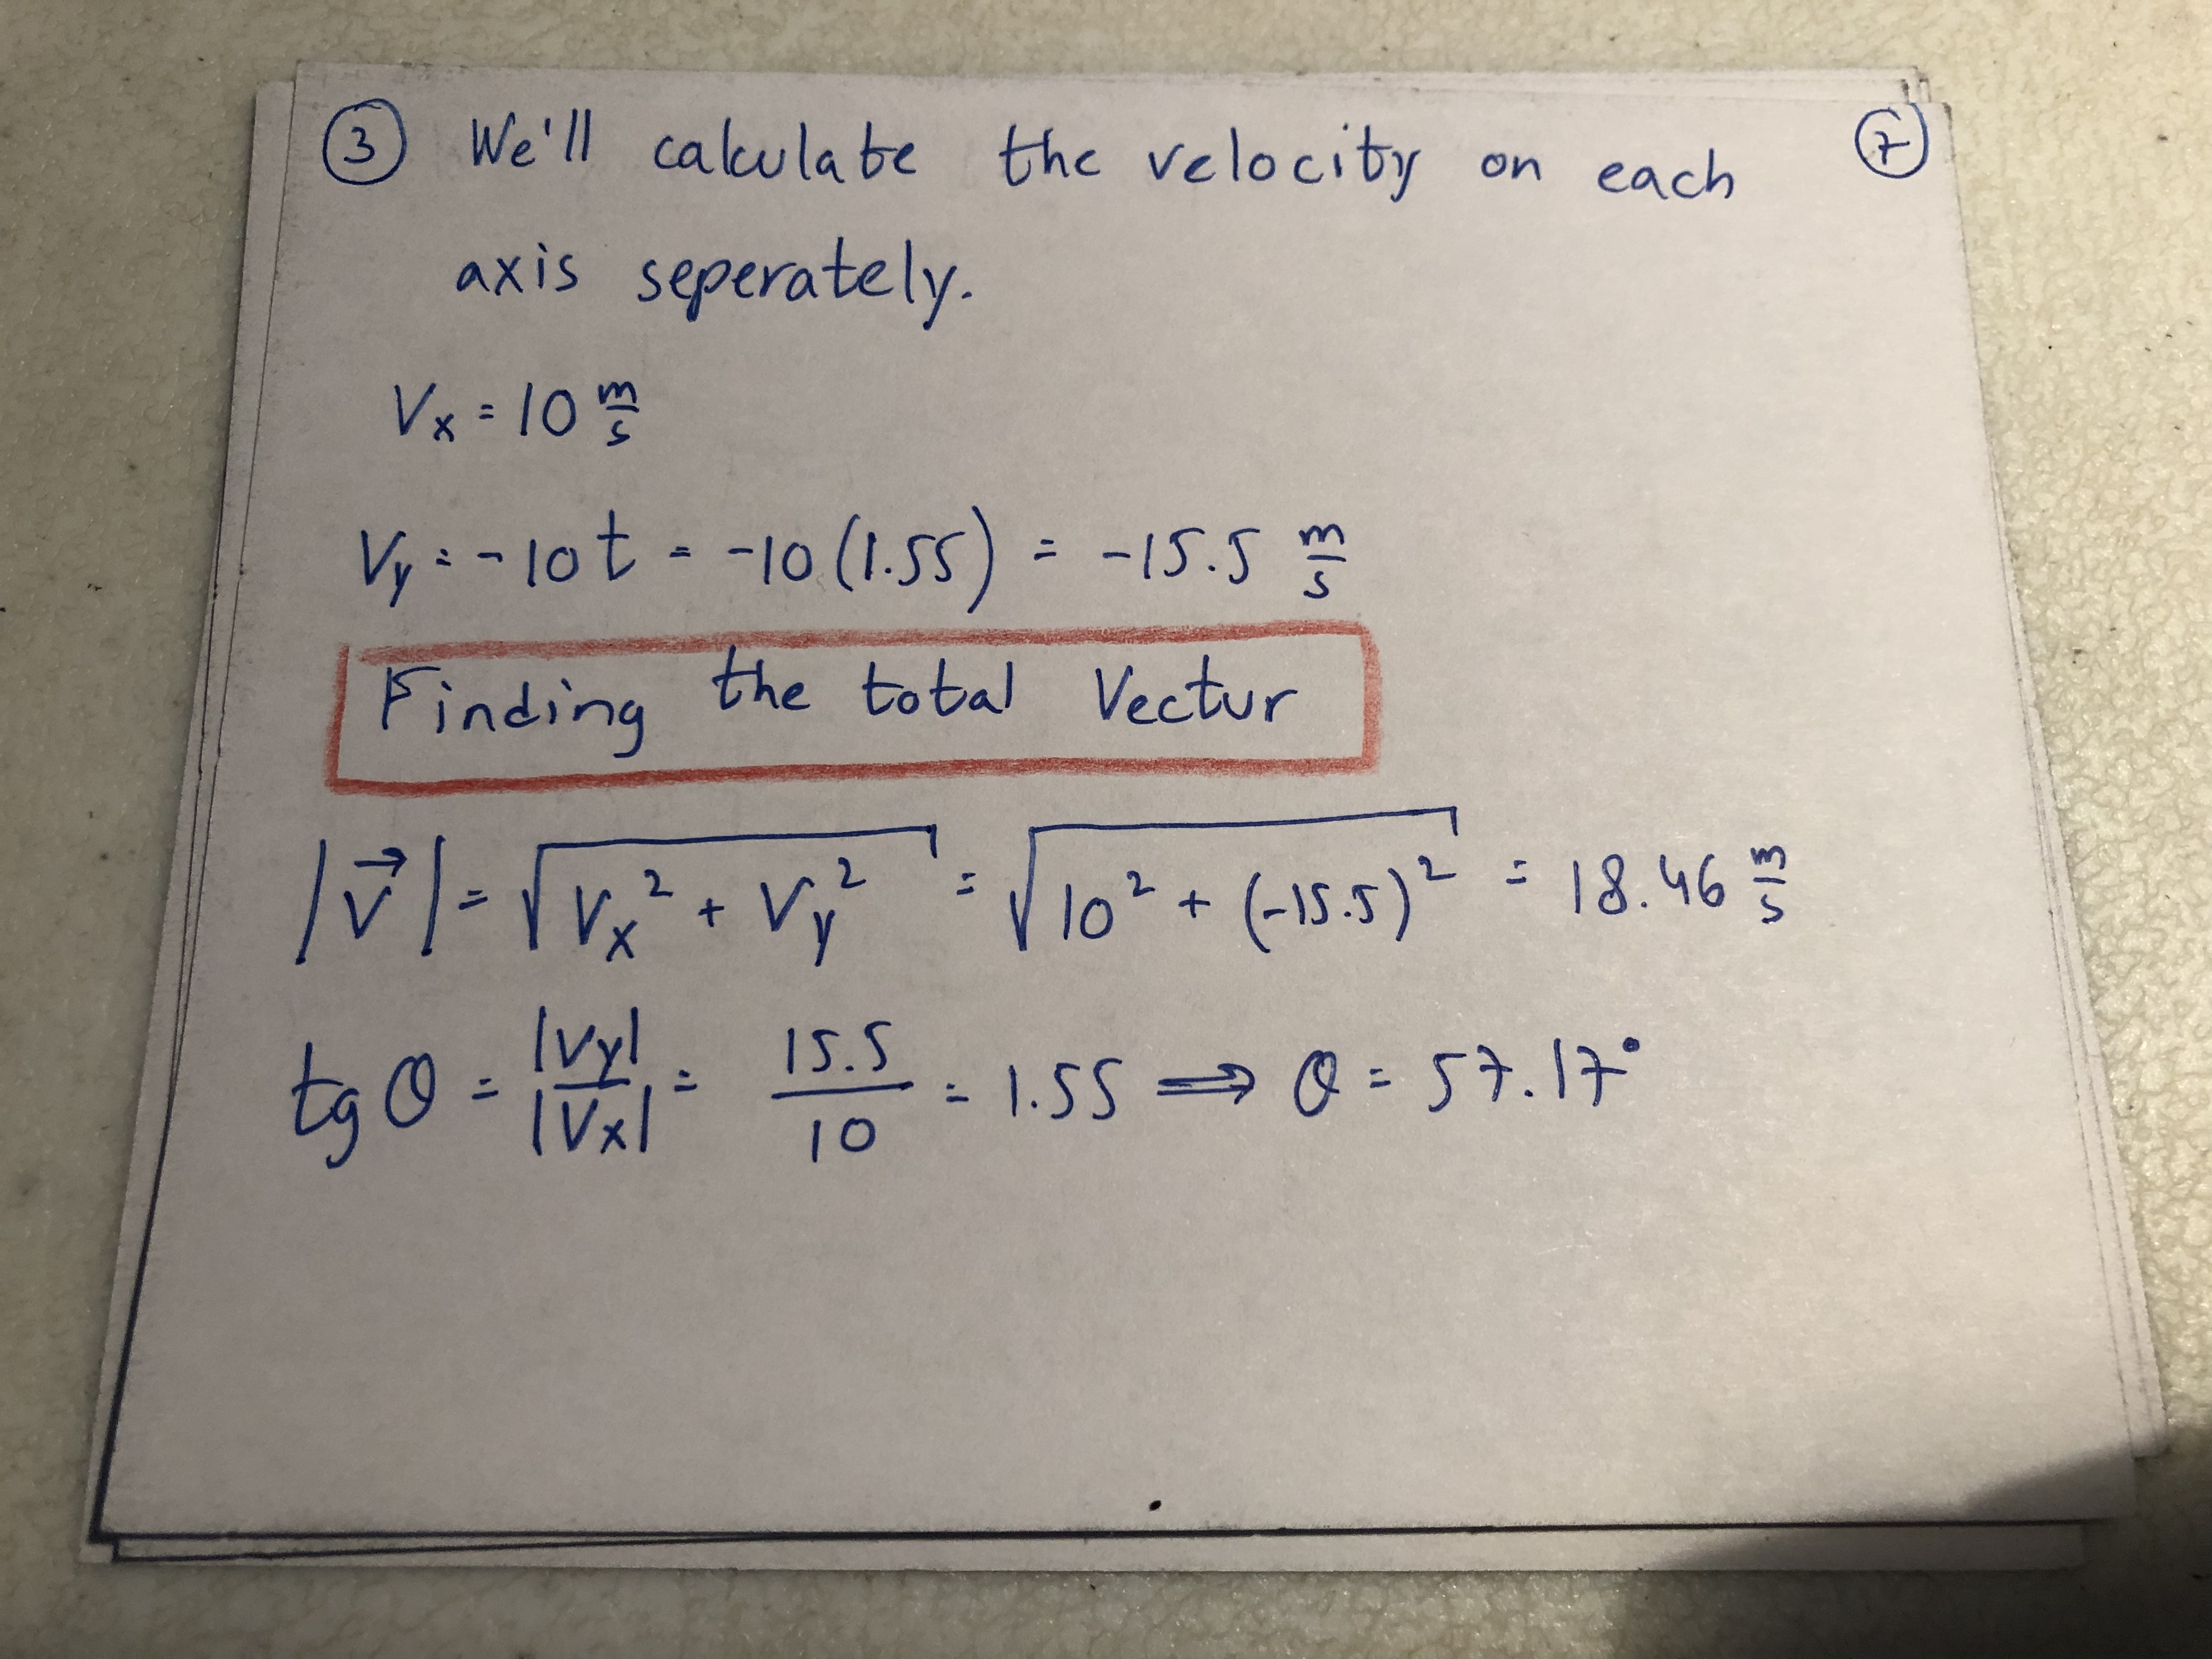 ③ We'll calculate the velocity on each ⑦
axis seperately.
Vx = 10 m/s
Vy = -10t = -10(1.55) = -15.5 m/s
Finding the total Vectur
|V⃗| = √(Vx² + Vy²) = √(10² + (-15.5)²) = 18.46 m/s
tg θ = |Vy|/|Vx| = 15.5/10 = 1.55 ⟹ θ = 57.17°